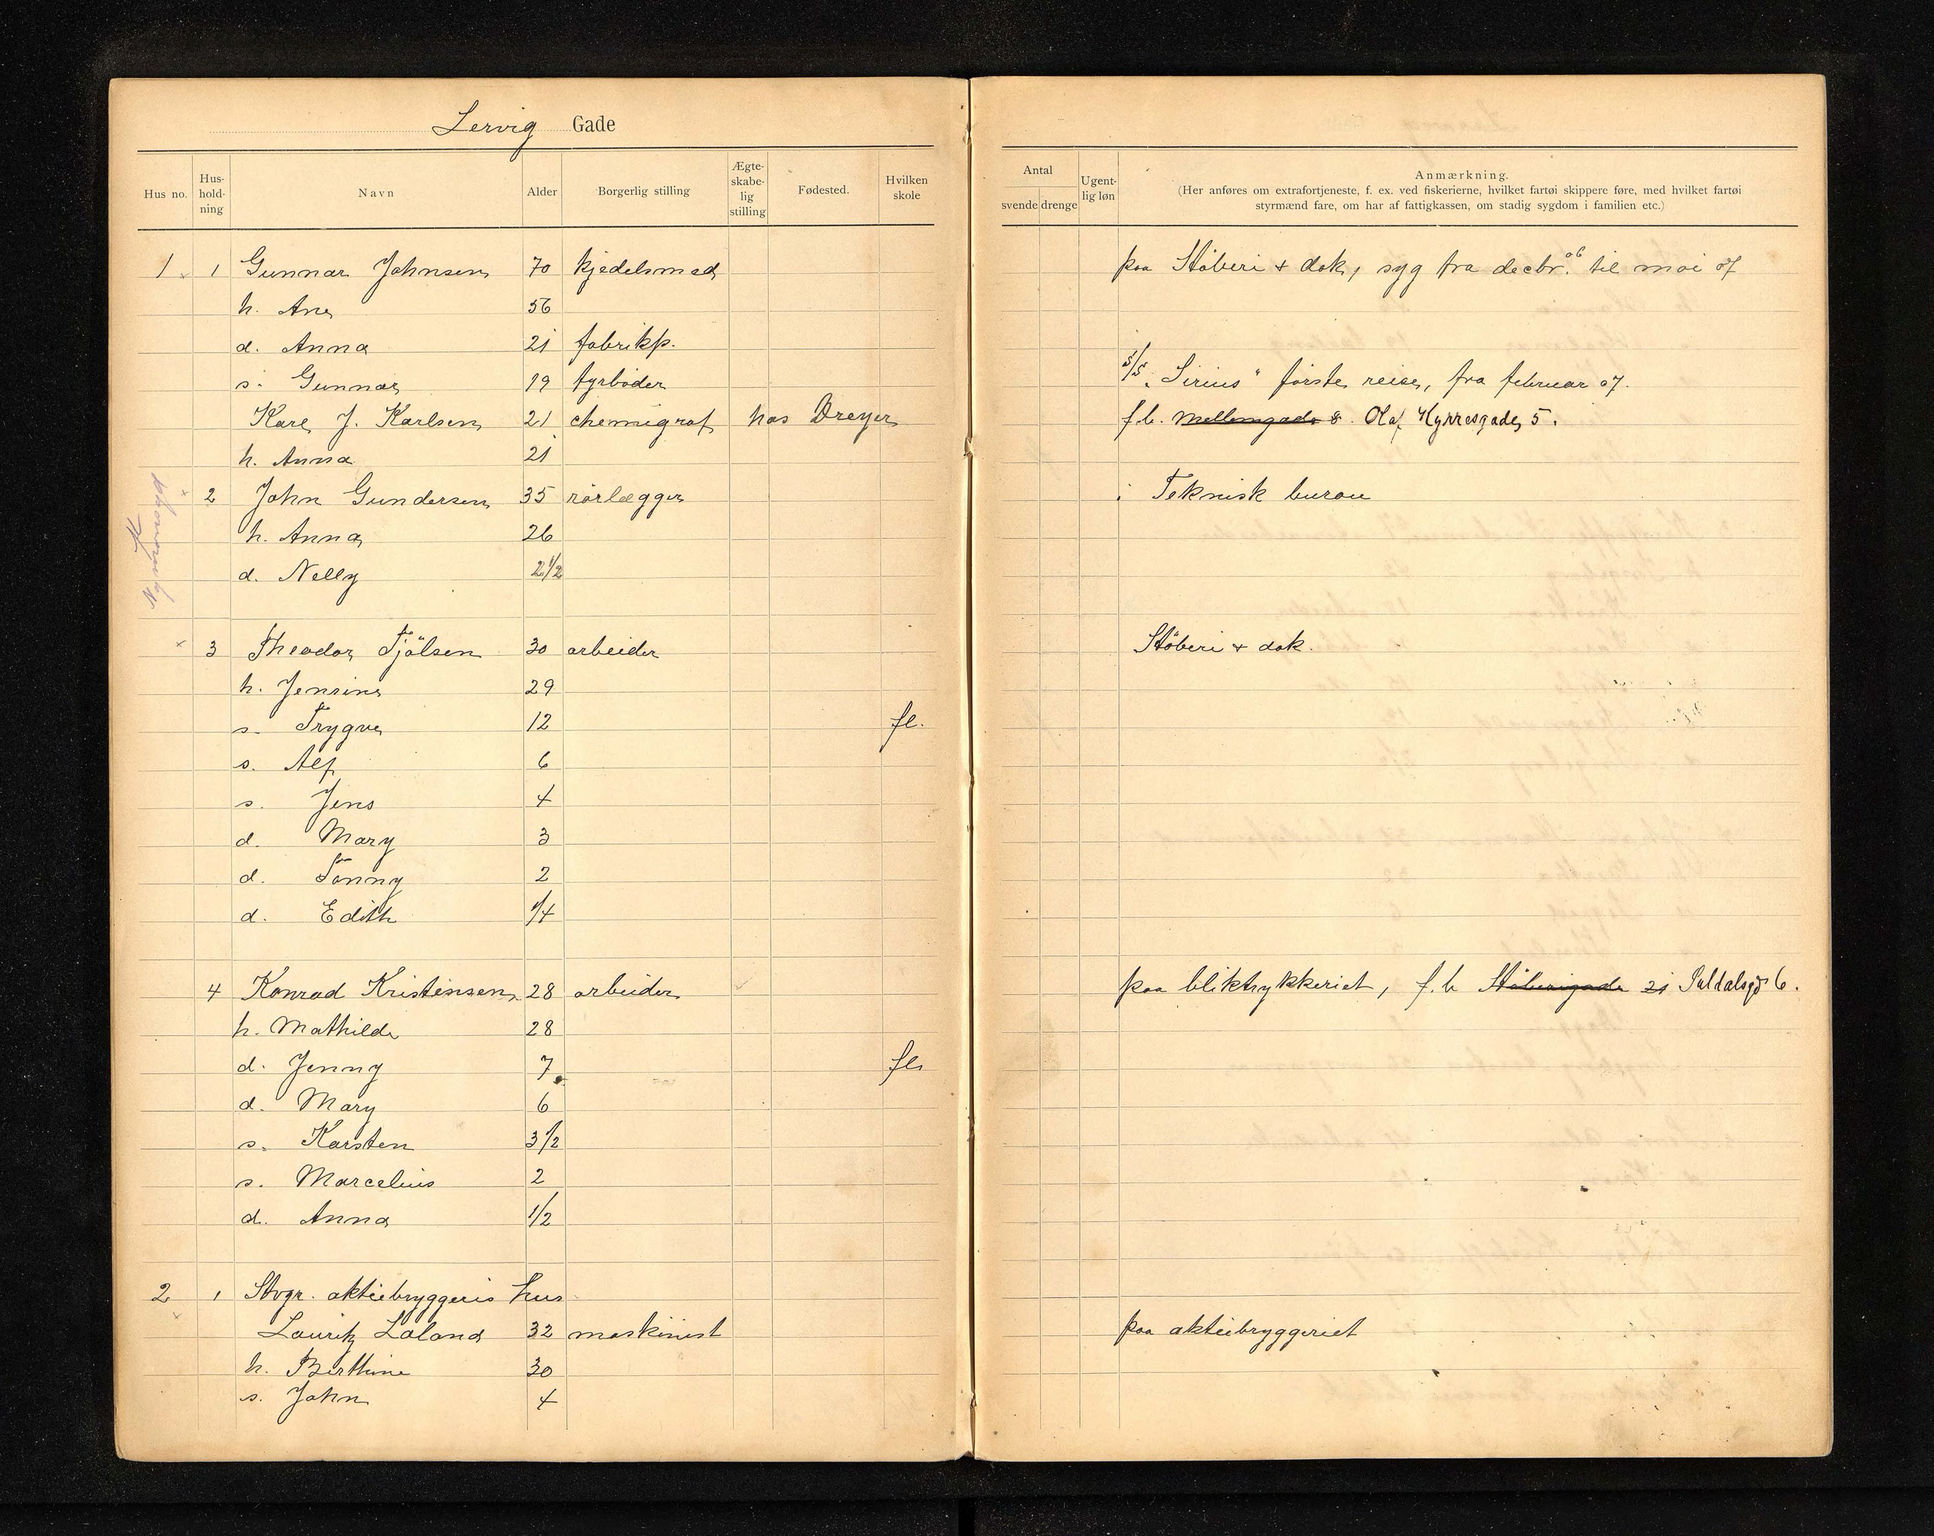 Lervig Gade
Hus no. Hus-hold-ning Navn Alder Borgerlig stilling Ægte-skabe-lig stilling Fødested. Hvilken skole
Antal svende drenge Ugent-lig løn Anmærkning.
(Her anføres om extrafortjeneste, f. ex. ved fiskerierne, hvilket fartøi skippere føre, med hvilket fartøi
styrmænd fare, om har af fattigkassen, om stadig sygdom i familien etc.)
1 1 Gunnar Johnsen 70 kjedelsmed paa Støberi + dok, syg fra decbr. 06 til mai 07
h. Ane 56
d. Anna 21 fabrikp.
s. Gunnar 19 fyrbøder s/s "Sirius" første reise, fra februar 07.
Karl J. Karlsen 21 chemigraf hos Dreyer f.b. Mellemgade 8. Olaf Kyrresgade 5.
h. Anna 21
2 John Gundersen 35 rørlægger i Teknisk bureau
h. Anna 26
d. Nelly 2 1/2
3 Theodor Tjölsen 30 arbeider Støberi + dok.
h. Jensine 29
s. Trygve 12 fl.
s. Alf 6
s. Jens 4
d. Mary 3
d. Tonny 2
d. Edith 1/4
4 Konrad Kristensen 28 arbeider paa bliktrykkeriet, f.b Støberigade 21 Suldalsgd 6.
h. Mathilde 28
d. Jenny 7 fl.
d. Mary 6
s. Karsten 3 1/2
s. Marcelius 2
d. Anna 1/2
2 1 Stvgr. aktiebryggeris hus
Lauritz Laland 32 maskinist paa aktiebryggeriet
h. Berthine 30
s. John 4